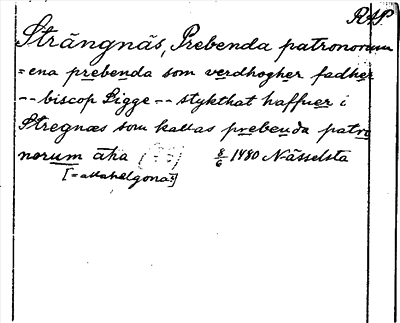 RAP.
Strängnäs, Prebenda patronorum
=ena prebenda som verdhogher fadher
-- biscop Sigge -- stykthat haffuer i
Stregnæs som kallas prebenda patro
norum äha 8/6 1480 Nässelsta
[=allahelgona?]